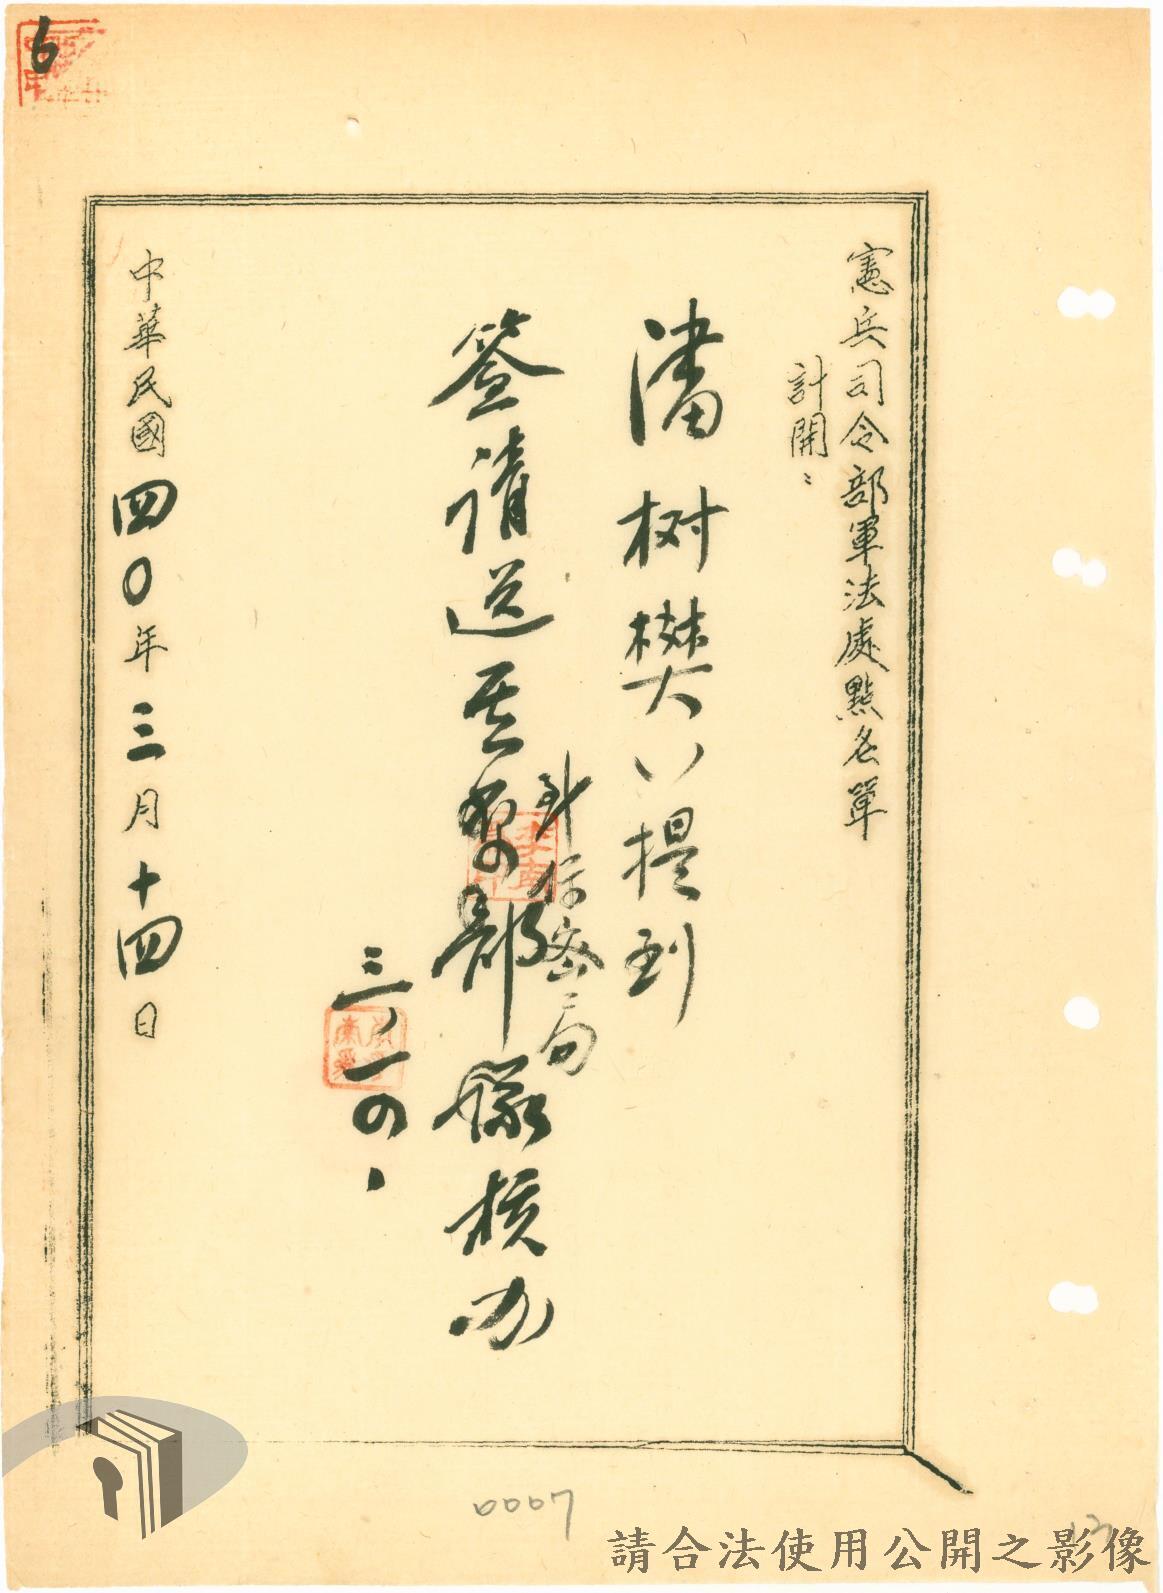 憲兵司令部軍法處點名單
計開：
潘树樊 提到
簽請送 部 核办
保密局
三、一四、
中華民國四〇年三月十四日
6
0007
請合法使用公開之影像